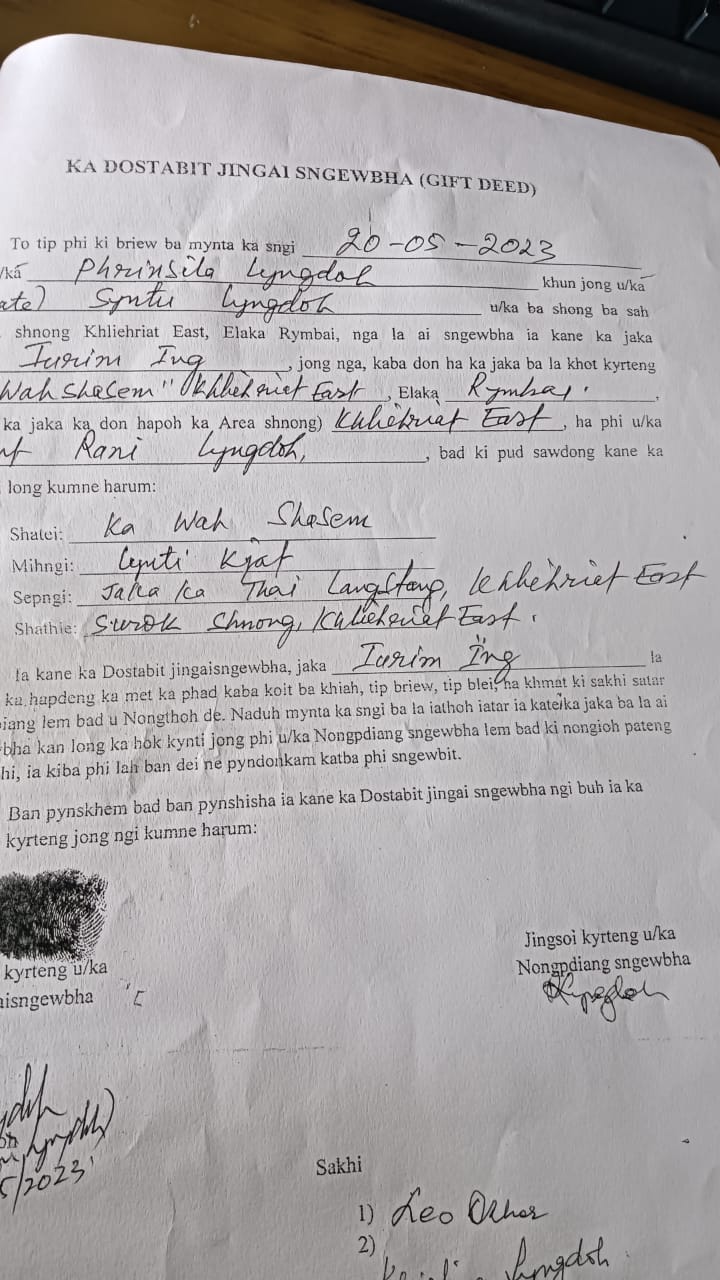 KA DOSTABIT JINGAI SNGEWBHA (GIFT DEED)
To tip phi ki briew ba mynta ka sngi 20-05-2023
/ka Phrinsila Lyngdoh khun jong u/ka
ate) Syntu Lyngdoh u/ka ba shong ba sah
shnong Khliehriat East, Elaka Rymbai, nga la ai sngewbha ia kane ka jaka
Iurim Ing, jong nga, kaba don ha ka jaka ba la khot kyrteng
Wah shasem" Khliehriat East, Elaka Rymbai.
ka jaka ka don hapoh ka Area shnong) Khliehriat East, ha phi u/ka
Rani Lyngdoh, , bad ki pud sawdong kane ka
long kumne harum:
Shatei: Ka Wah Shasem
Mihngi: Kjat
Sepngi: Jaka ka Thai Langstang, Khliehriat East
Shathie: Surok Shnong, Khliehriat East.
Ia kane ka Dostabit jingaisngewbha, jaka Iurim Ïng la
ka hapdeng ka met ka phad kaba koit ba khiah, tip briew, tip blei, ha khmat ki sakhi satar
iang lem bad u Nongthoh de. Naduh mynta ka sngi ba la iathoh iatar ia kateika jaka ba la ai
bha kan long ka hok kynti jong phi u/ka Nongpdiang sngewbha lem bad ki nongioh pateng
hi, ia kiba phi lah ban dei ne pyndonkam katba phi sngewbit.
Ban pynskhem bad ban pynshisha ia kane ka Dostabit jingai sngewbha ngi buh ia ka
kyrteng jong ngi kumne harum:
Jingsoi kyrteng u/ka
Nongpdiang sngewbha
kyrteng u/ka
aisngewbha
5/2023
Sakhi
1) Leo
2) Lyngdoh